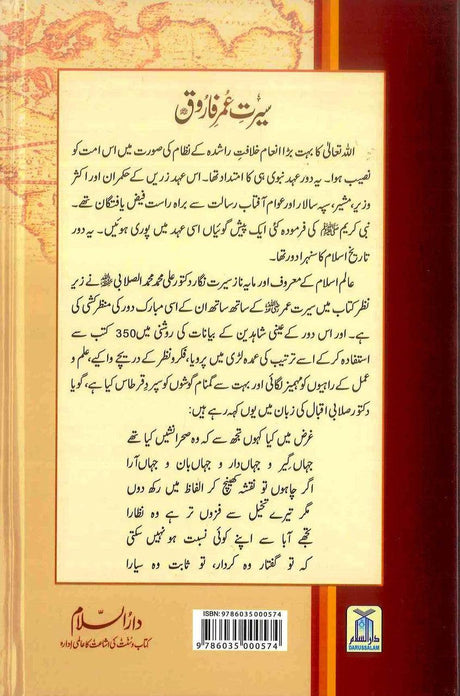 سیرتِ عمر فاروق ؓ
اللہ تعالیٰ کا بہت بڑا انعام خلافتِ راشدہ کے نظام کی صورت میں اس امت کو
نصیب ہوا۔ یہ دور عہد نبوی ہی کا امتداد تھا۔ اس عہد زریں کے حکمران اور اکثر
وزیر، مشیر، سپہ سالار اور عوام آفتاب رسالت سے براہ راست فیض یافتگان تھے۔
نبی کریم ﷺ کی فرمودہ کئی ایک پیش گوئیاں اسی عہد میں پوری ہوئیں۔ یہ دور
تاریخ اسلام کا سنہرا دور تھا۔
عالم اسلام کے معروف اور مایہ ناز سیرت نگار دکتور علی محمد محمد الصلابی ﷾ نے زیر
نظر کتاب میں سیرت عمر ؓ کے ساتھ ساتھ ان کے اسی مبارک دور کی منظر کشی کی
ہے۔ اور اس دور کے عینی شاہدین کے بیانات کی روشنی میں 350 کتب سے
استفادہ کر کے اسے ترتیب کی عمدہ لڑی میں پرویا، فکر و نظر کے دریچے وا کیے، علم و
عمل کے راہیوں کو مہمیز لگائی اور بہت سے گمنام گوشوں کو سپرد قرطاس کیا ہے، گویا
دکتور صلابی اقبال کی زبان میں یوں کہہ رہے ہیں:
غرض میں کیا کہوں تجھ سے کہ وہ صحرا نشیں کیا تھے
جہاں گیر و جہاں دار و جہاں بان و جہاں آرا
اگر چاہوں تو نقشہ کھینچ کر الفاظ میں رکھ دوں
مگر تیرے تخیل سے فزوں تر ہے وہ نظارا
تجھے آبا سے اپنے کوئی نسبت ہو نہیں سکتی
کہ تو گفتار وہ کردار، تو ثابت وہ سیارا
دارالسلام
کتاب و سنت کی اشاعت کا عالمی ادارہ
ISBN: 9786035000574
9 786035 000574
دارالسلام
DARUSSALAM